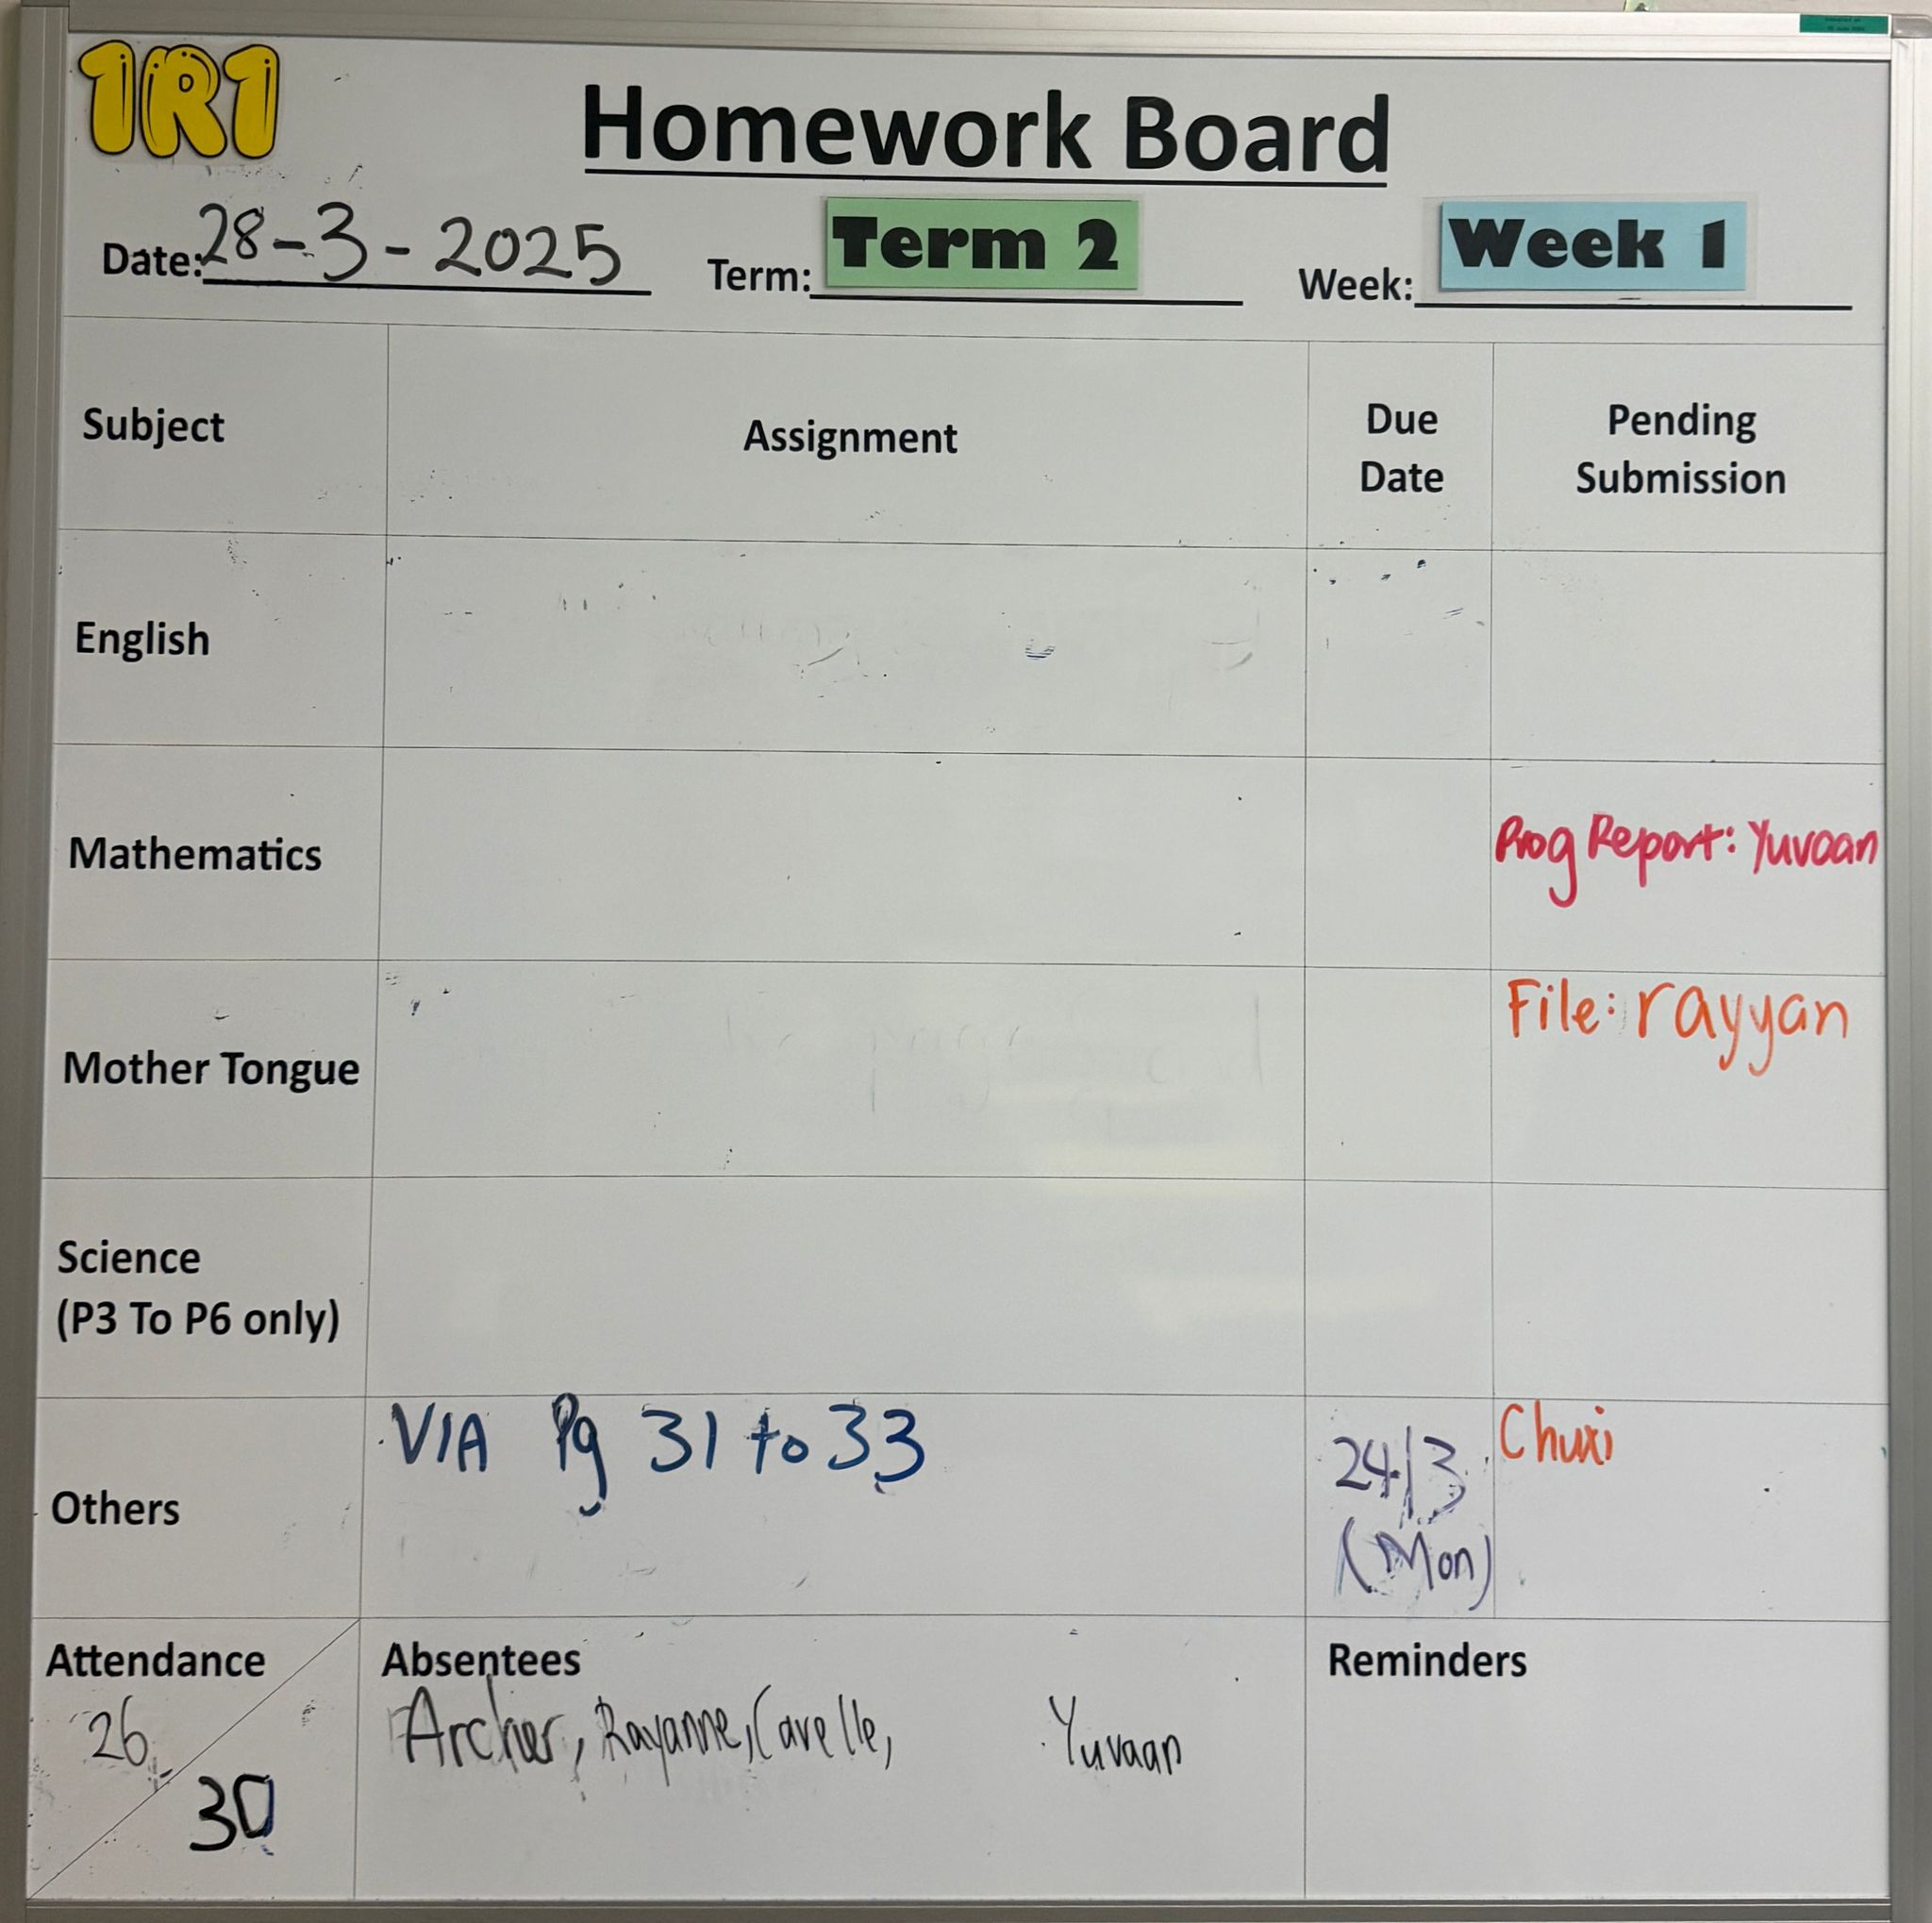 1R1
Homework Board
Date: 28-3-2025 Term: Term 2 Week: Week 1
Subject Assignment Due Date Pending Submission
English
Mathematics Prog Report: Yuvaan
Mother Tongue File: rayyan
Science
(P3 To P6 only)
Others VIA Pg 31 to 33 24/3 (Mon) Chuxi
Attendance Absentees Reminders
26 Archer, Rayanne, Cavelle, Yuvaan
30